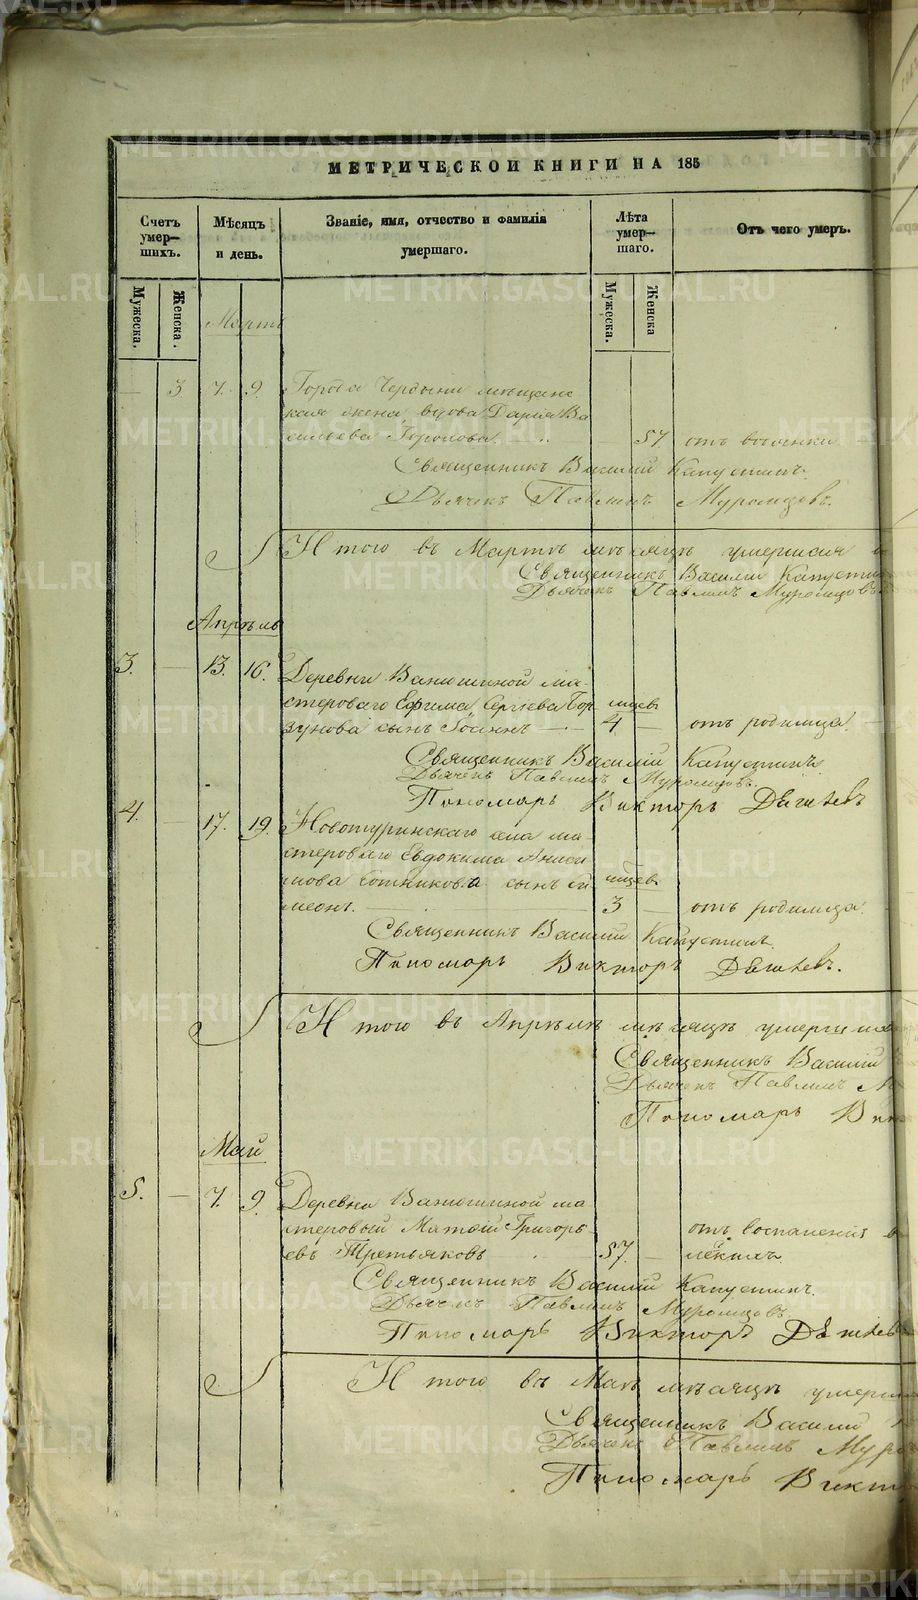 МЕТРИЧЕСКОЙ КНИГИ НА 185
Счетъ умер-шихъ.
Мѣсяцъ и день.
Званіе, имя, отчество и фамилія умершаго.
Лѣта умер-шаго.
Отъ чего умеръ.
Мужеска.
Женска.
Мужеска.
Женска
Мартъ
— 3 7. 9. Города Чердыни мѣщанс
кая жена вдова Дарья Ва
сильева 57 отъ
Священникъ Василій Капустинъ.
Дьячекъ Павлинъ Муромцовъ.
Итого въ Мартѣ мѣсяцѣ умершая
Священникъ Василій Капустин
Дьячекъ Павлинъ Муромцовъ
Апрѣль
3. — 13. 16. Деревни Ванюшиной ма-
стероваго Ефима Сергѣева Бор мцевъ
зунова сынъ Іоаннъ — 4 — отъ родимца. —
Священникъ Василій Капустинъ.
Дьячекъ Павлинъ Муромцовъ.
Пономарь Викторъ Дѣтлевъ
4. 17. 19. Новотуринскаго села ма-
стероваго Евдокима Аниси
мова Сотникова сынъ Си мцевъ
меонъ. 3 — отъ родимца.
Священникъ Василій Капустинъ.
Пономарь Викторъ
Итого въ Апрѣлѣ мѣсяцѣ умерши
Священникъ Василій
Дьячекъ Павлинъ М
Пономарь Вик
Май
5. — 7. 9. Деревни Ванюшиной ма-
стеровый Матѳей Григорь
евъ Третьяковъ 57. — отъ воспаленія въ
лёкихъ.
Священникъ Василій Капустинъ.
Дьячекъ Павлинъ Муромцовъ
Пономарь Викторъ
Итого въ Маѣ мѣсяцѣ умерш
Священникъ Василій
Дьячекъ Павлинъ Муро
Пономарь Викт
METRIKI.GASO-URAL.RU